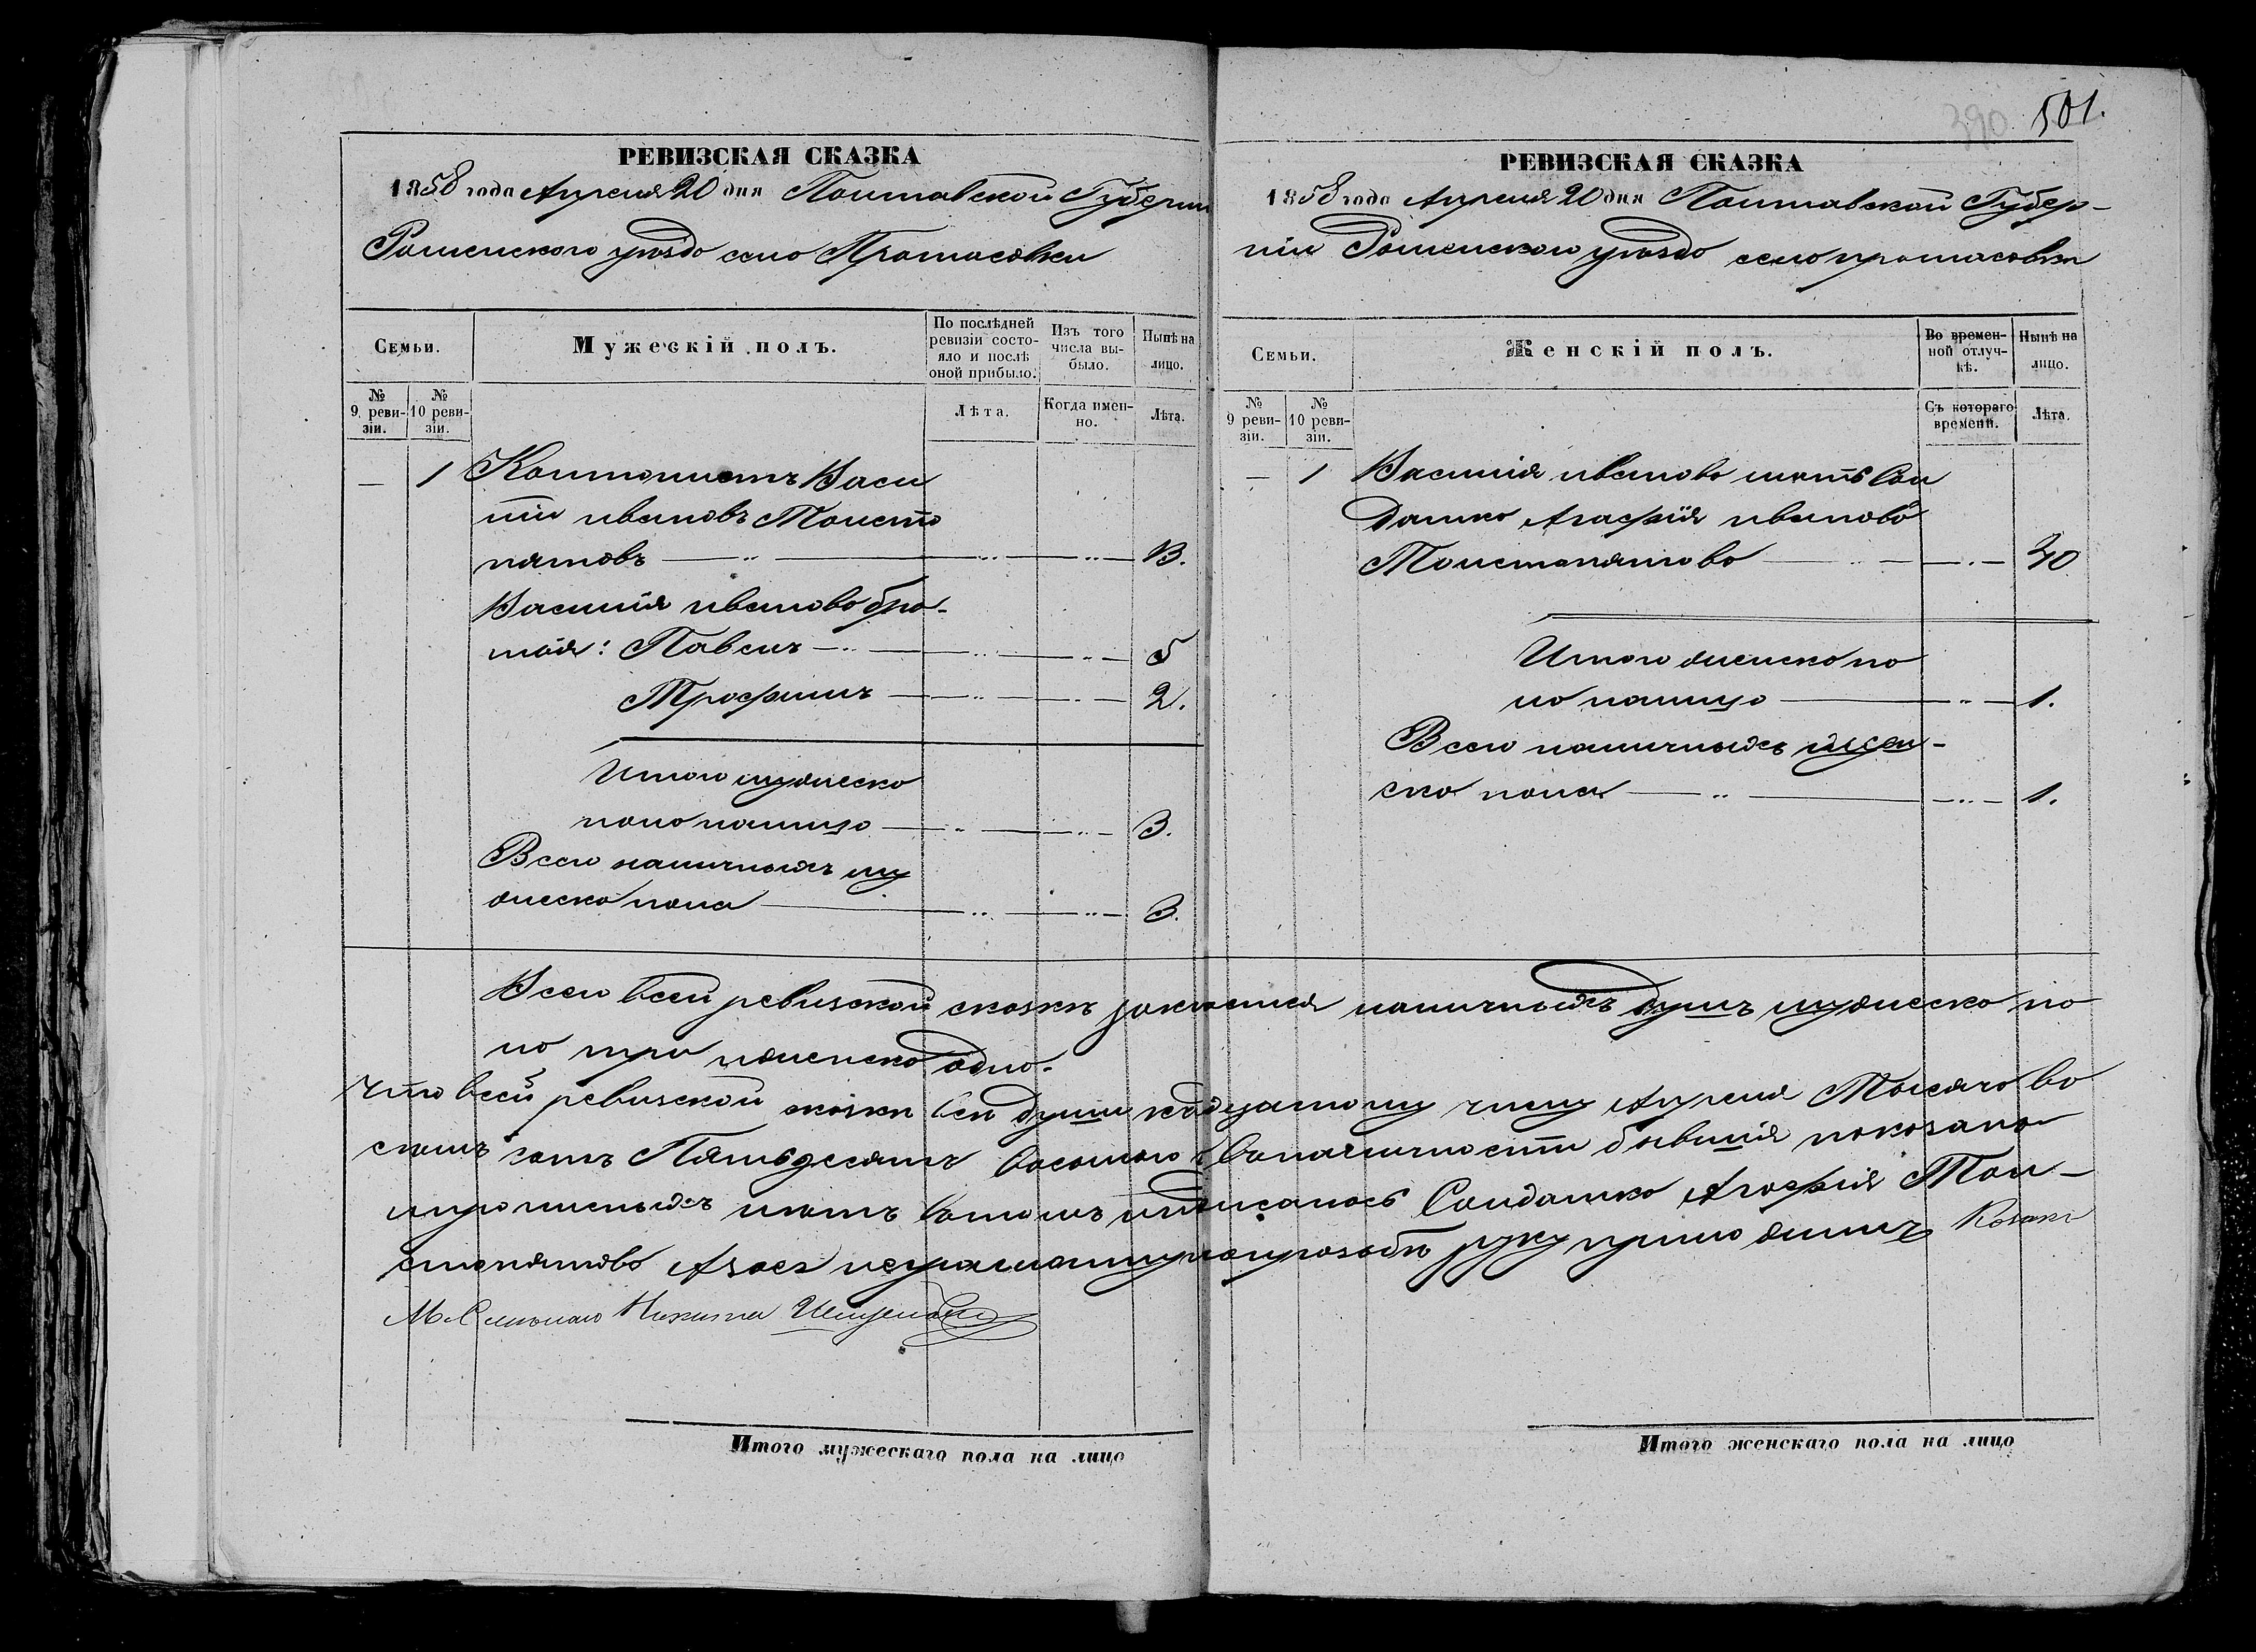 390 501.
РЕВИЗСКАЯ СКАЗКА
1858 года Апреля 20 дня Полтавской Губернии
Роменского уѣздо село Протасовки
Семьи.
Мужескій полъ.
По послѣдней ревизіи состояло и послѣ оной прибыло.
Изъ того числа выбыло.
Нынѣ на лицо.
№ 9 ревизіи.
№ 10 ревизіи.
Лѣта.
Когда именно.
Лѣта.
— 1 Кантонистъ Васи
лій ивановъ Толсто
пятовъ 13.
Василія иваново бра-
тья: Павелъ 5
Трофимъ 2.
Итого мужеско
поло налицо 3.
Всего наличныхъ му
жеско пола 3.
РЕВИЗСКАЯ СКАЗКА
1858 года Апреля 20 дня Полтавской Губер-
ніи Роменского уѣздо село протасовки
Семьи.
Женскій полъ.
Во временной отлучкѣ.
Нынѣ на лицо.
№ 9 ревизіи.
№ 10 ревизіи.
Съ котораго времени.
Лѣта.
— 1 Василія иваново мать Сол
датко Агафія иваново
Толстопятово 40
Итого женско по
ло налицо 1.
Всего наличныхъ жен-
ско пола 1.
Всего всей ревизской сказки наличныхъ душъ мужеско по
ло три женско одно.
Что всей ревизской сказки все души кодвадцатому числу Апреля Тысячо во
семъ сотъ Пятьдесятъ восьмого вналичности бывшія показано
и прописныхъ нетъ вотомъ подписалось Солдатко Агафія Тол-
стопятово Азаеё неграмотную попрозьбѣ руку приложилъ Козакъ
М. Смѣлаго Никита
Итого мужескаго пола на лицо
Итого женскаго пола на лицо